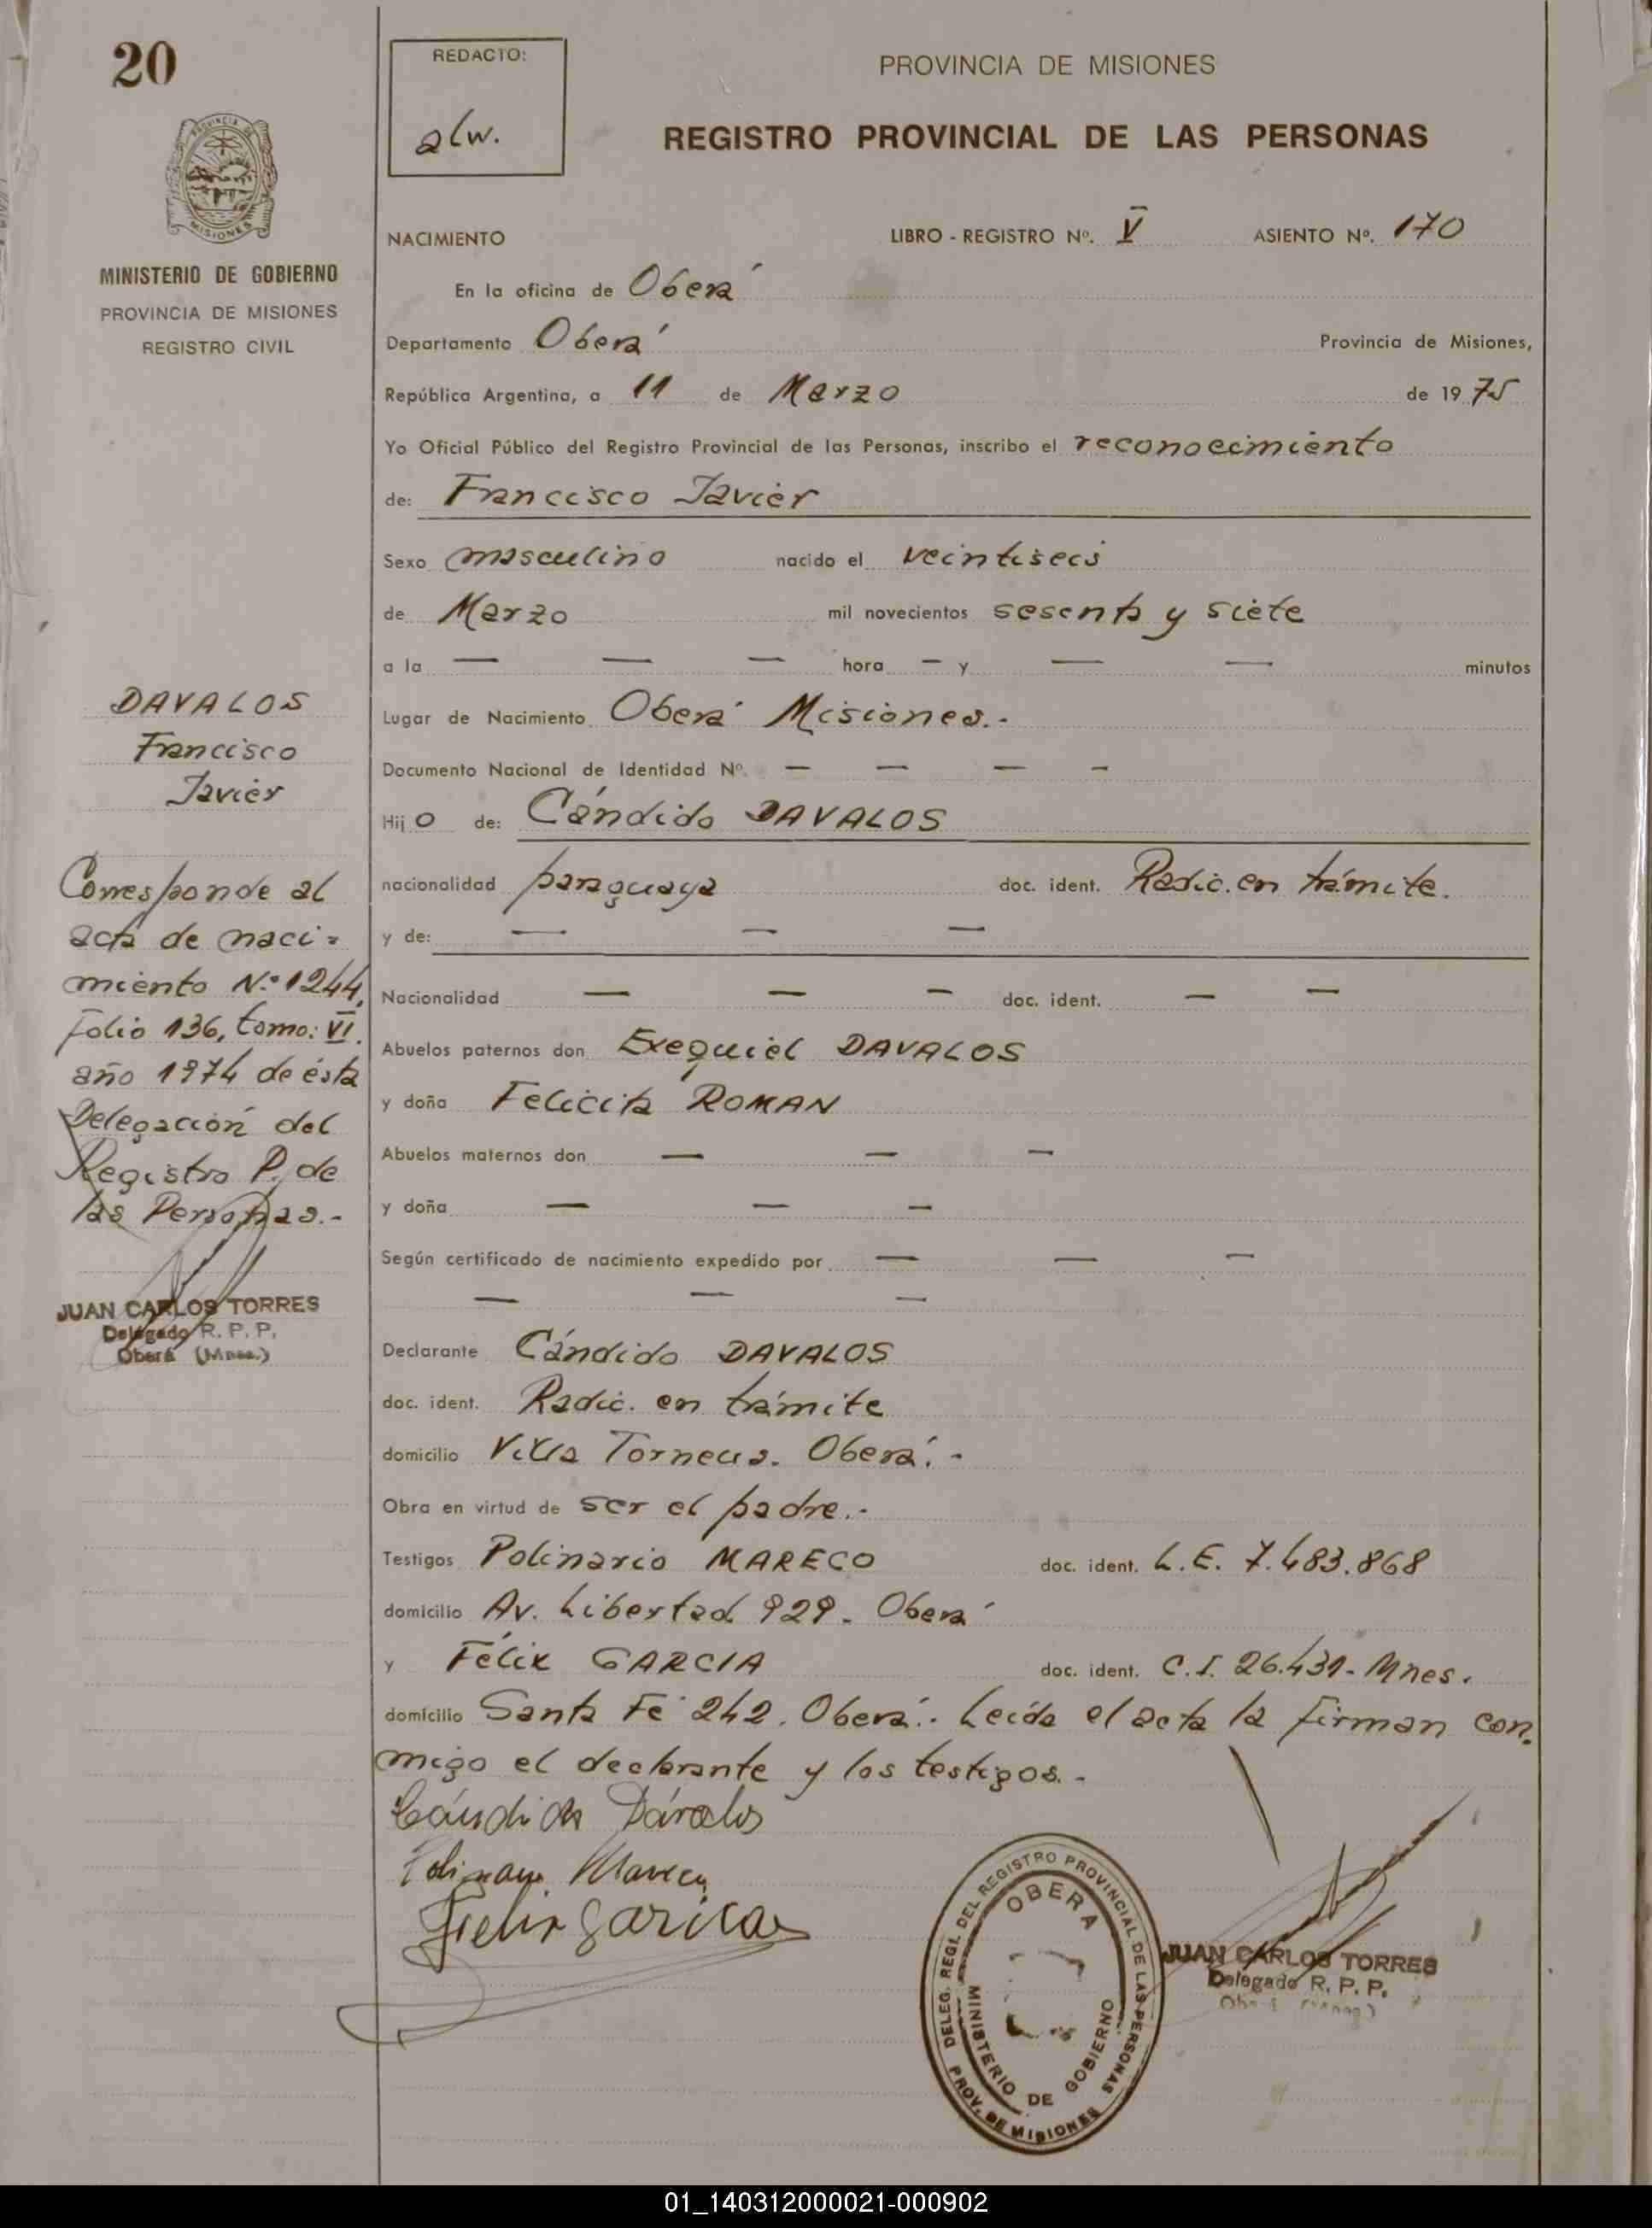 20
REDACTO:
alw.
PROVINCIA DE MISIONES
REGISTRO PROVINCIAL DE LAS PERSONAS
PROVINCIA DE
MISIONES
MINISTERIO DE GOBIERNO
PROVINCIA DE MISIONES
REGISTRO CIVIL
NACIMIENTO LIBRO - REGISTRO Nº. V ASIENTO Nº. 170
En la oficina de Oberá
Departamento Oberá Provincia de Misiones,
República Argentina, a 11 de Marzo de 1975
Yo Oficial Público del Registro Provincial de las Personas, inscribo el reconocimiento
de: Francisco Javier
Sexo masculino nacido el veintiseis
de Marzo mil novecientos sesenta y siete
a la — — — hora — y — — minutos
Lugar de Nacimiento Oberá Misiones.-
Documento Nacional de Identidad Nº. — — — -
Hijo de: Cándido DAVALOS
nacionalidad paraguaya doc. ident. Radic. en trámite.
y de: — — —
Nacionalidad — — — doc. ident. — —
Abuelos paternos don Exequiel DAVALOS
y doña Felicita ROMAN
Abuelos maternos don — — —
y doña — — —
Según certificado de nacimiento expedido por — — —
— — —
Declarante Cándido DAVALOS
doc. ident. Radic. en trámite
domicilio Villa Torneus. Oberá.-
Obra en virtud de ser el padre.-
Testigos Polinario MARECO doc. ident. L.E. 7.483.868
domicilio Av. Libertad 929- Oberá
y Félix GARCIA doc. ident. C.I. 26.431- Mnes.
domicilio Santa Fé 242. Oberá.- Leída el acta la firman con-
migo el declarante y los testigos.-
Cándido Dávalos
Polinario Mareco
Felix Garcia
DAVALOS
Francisco
Javier
Corresponde al
acta de naci-
miento N.º 1244,
Folio 136, tomo: VI.
año 1974 de ésta
Delegación del
Registro P. de
las Personas.-
JUAN CARLOS TORRES
Delegado R. P. P.
Oberá (Mnes.)
DELEG. REGI. DEL REGISTRO PROVINCIAL DE LAS PERSONAS
OBERA
MINISTERIO DE GOBIERNO
PROV. DE MISIONES
JUAN CARLOS TORRES
Delegado R. P. P.
01_140312000021-000902